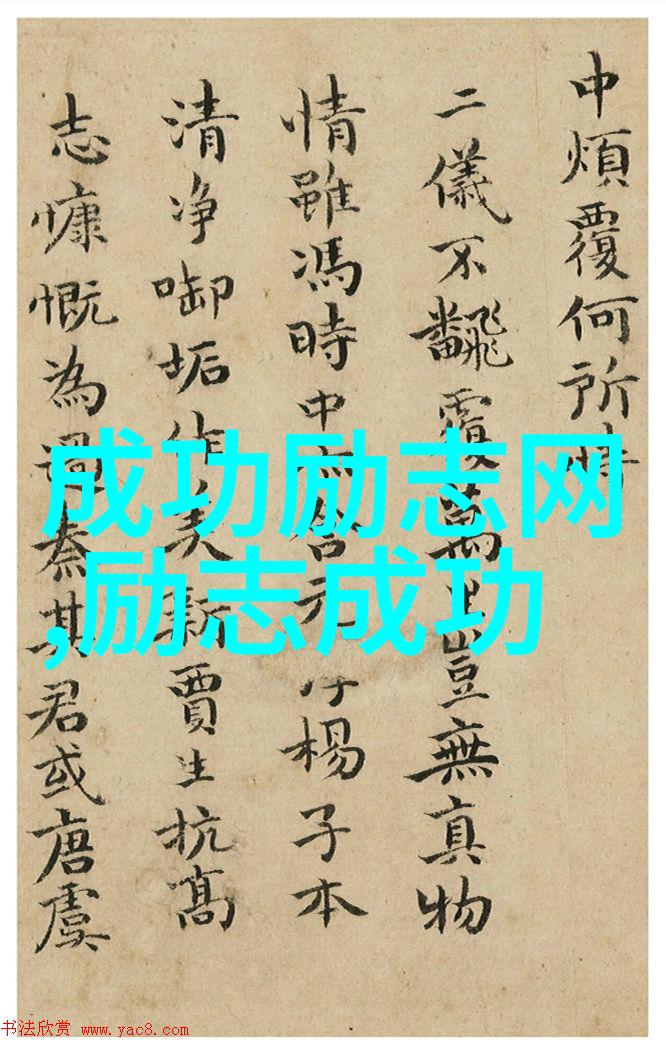 中煩覆何所
二儀不飜覆萬豈無真物
情雖馮時中楊子本
清净啣垢作美新賈生抗高
志慷慨為過秦其君或唐虞
成功励志网
,励志成功
书法欣赏 www.yac8.com